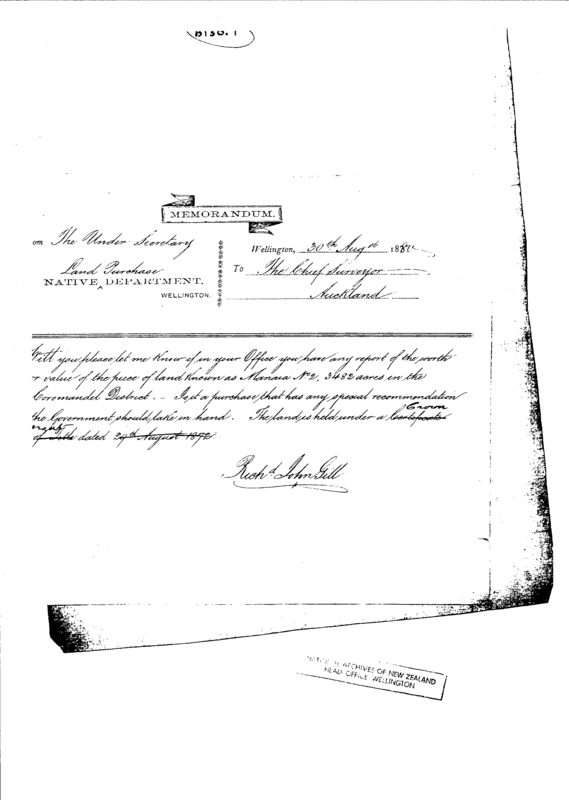 B130.1
MEMORANDUM.
om The Under Secretary
Land Purchase
NATIVE DEPARTMENT.
WELLINGTON.
Wellington, 30th Augst 188
To The Chief Surveyor
Auckland
Will you please let me know if in your Office you have any report of the worth
or value of the piece of land known as Manaia No 2, 3482 acres in the
Coromandel District. — Is it a purchase that has any special recommendation
the Government should take in hand. The land is held under a Certificate Crown
of Title dated 29th August 1872.
Richd John Gill
ARCHIVES OF NEW ZEALAND
HEAD OFFICE WELLINGTON